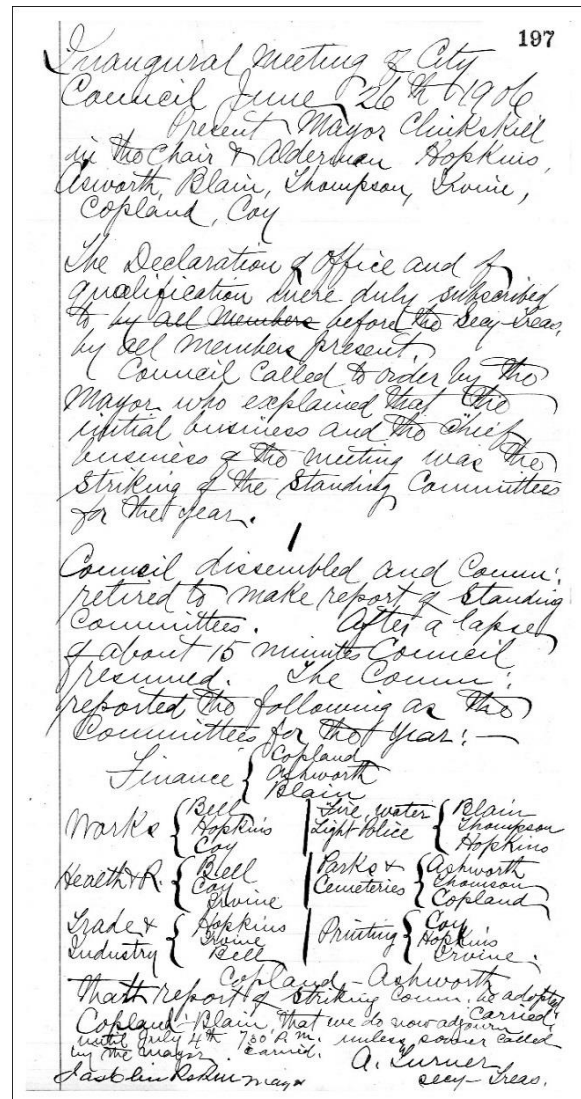 197
Inaugural Meeting of City
Council June 26th 1906
Present Mayor Clinkskill
in the Chair & Alderman Hopkins,
Asworth, Blain, Thompson, Irvine,
Copland, Coy
The Declaration of Office and of
qualification were duly subscribed
to by all Members before the Secy Treas,
by all members present.
Council called to order by the
Mayor who explained that the
initial business and the chief
business of the meeting was the
striking of the Standing Committees
for the year.
Council dissembled and Comm:
retired to make report of Standing
Committees. After a lapse
of about 15 minutes Council
resumed. The Comm:
reported the following as the
Committees for the Year:—
Finance { Copland
Ashworth
Blain
Works { Bell
Hopkins
Coy
Fire, water
Light Police { Blain
Thompson
Hopkins
Health & R. { Bell
Coy
Irvine
Parks &
Cemeteries { Ashworth
Thomson
Copland
Trade &
Industry { Hopkins
Irvine
Bell
Printing { Coy
Hopkins
Irvine.
Copland – Ashworth
That report of Striking Comm. be adopted
Carried.
Copland–Blain, that we do now adjourn
until July 4th 7.30 P.M. unless sooner called
by the Mayor. Carried.
A. Turner
Secy – Treas.
Jas Clinkskill Mayor